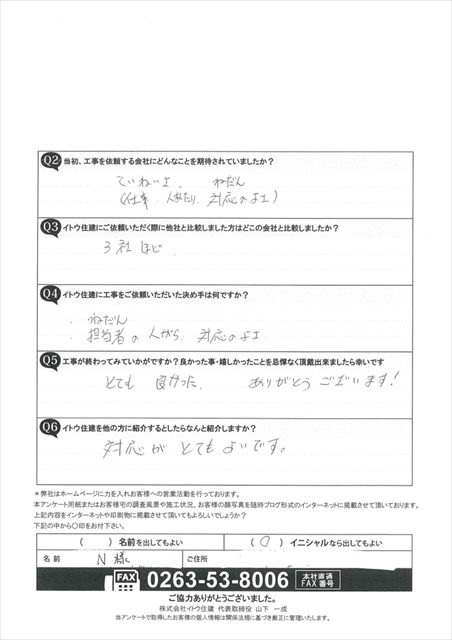 Q2 当初、工事を依頼する会社にどんなことを期待されていましたか？
ていねいさ、 ねだん
(仕事、人あたり、対応のよさ)
Q3 イトウ住建にご依頼いただく際に他社と比較しました方はどこの会社と比較しましたか？
3社ほど
Q4 イトウ住建に工事をご依頼いただいた決め手は何ですか？
・ねだん
・担当者の人がら、対応のよさ
Q5 工事が終わってみていかがですか？良かった事・嬉しかったことを忌憚なく頂戴出来ましたら幸いです
とても良かった、 ありがとうございます！
Q6 イトウ住建を他の方に紹介するとしたらなんと紹介しますか？
対応がとてもよいです。
＊弊社はホームページに力を入れお客様への営業活動を行っております。
本アンケート用紙またはお客様宅の調査風景や施工状況、お客様の顔写真を随時ブログ形式のインターネットに掲載させて頂いております。
上記内容をインターネットや印刷物に掲載させて頂いてもよろしいでしょうか？
下記の中から〇印をお付下さい。
(　) 名前を出してもよい (○) イニシャルなら出してもよい
名前 N 様 ご住所
FAX 0263-53-8006 本社直通 FAX番号
ご協力ありがとうございました。
株式会社イトウ住建 代表取締役 山下 一成
当アンケートで取得したお客様の個人情報は関係法規に基づき厳正に管理いたします。